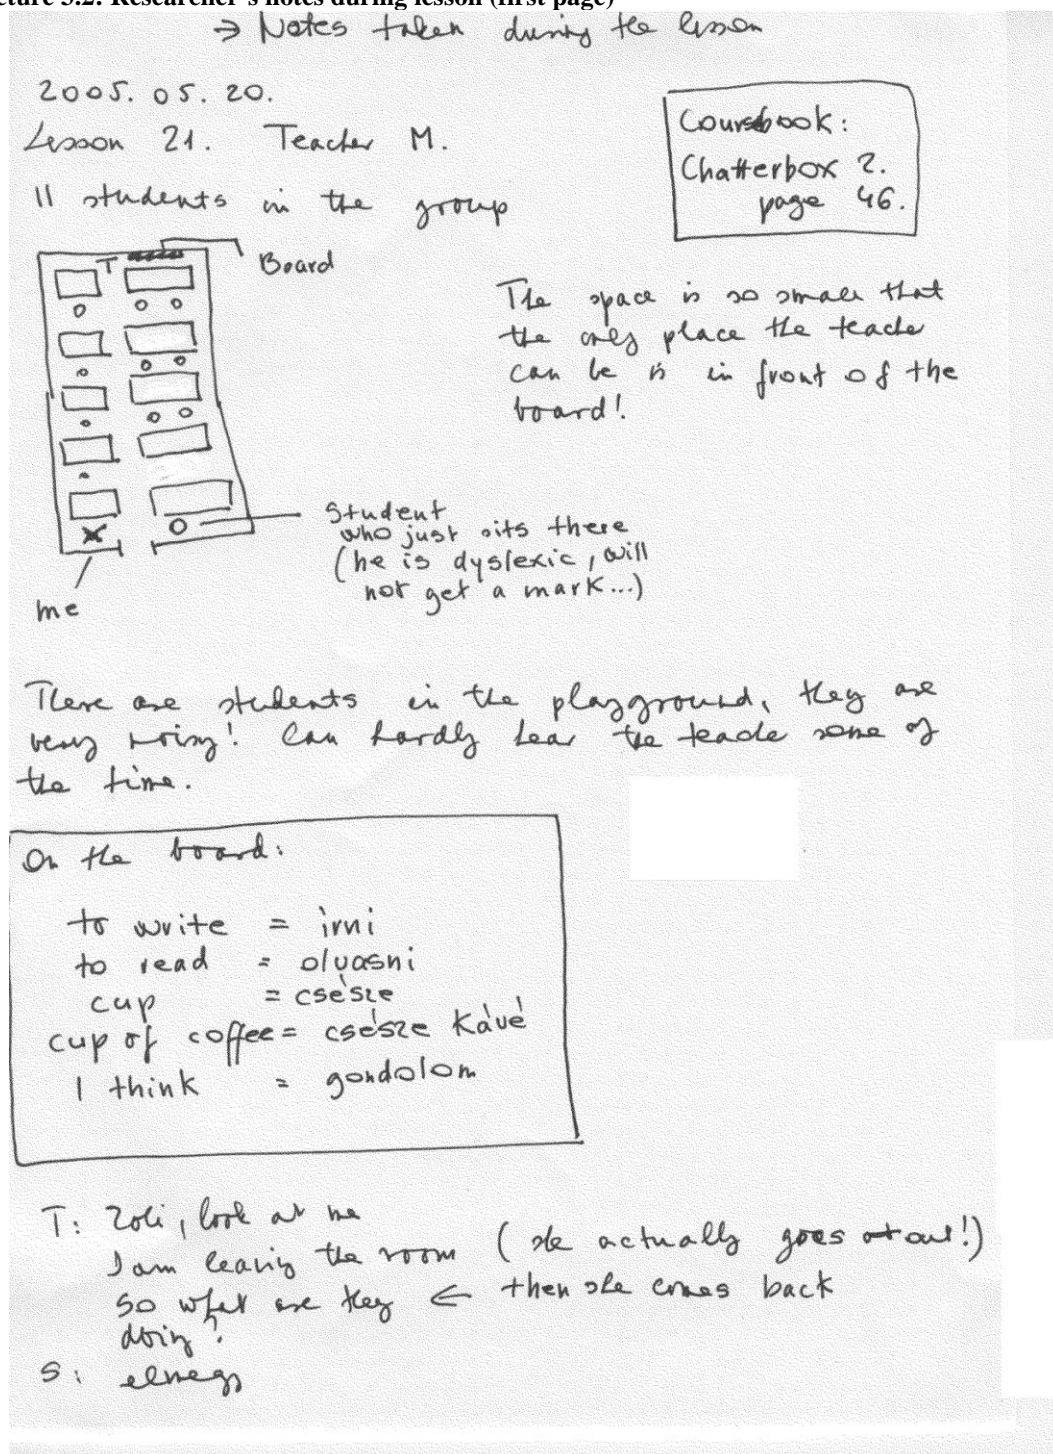 Picture 3.2: Researcher's notes during lesson (first page)
→ Notes taken during the lesson
2005. 05. 20.
Lesson 21. Teacher M.
11 students in the group
Coursebook:
Chatterbox 2.
page 46.
T
Board
The space is so small that
the only place the teacher
can be is in front of the
board!
Student
who just sits there
(he is dyslexic, will
not get a mark...)
me
There are students in the playground, they are
very noisy! Can hardly hear the teacher some of
the time.
On the board:
to write = irni
to read = olvasni
cup = csésze
cup of coffee = csésze kávé
I think = gondolom
T: Zoli, look at me
I am leaving the room (she actually goes out!)
so what are they ← then she comes back
doing?
S: elmegy